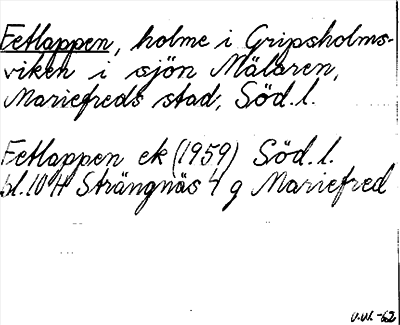 Fetlappen, holme i Gripsholms-
viken i sjön Mälaren,
Mariefreds stad, Söd. l.
Fetlappen ek (1959) Söd. l.
bl. 10 H Strängnäs 4 g Mariefred
V.Vl. -62